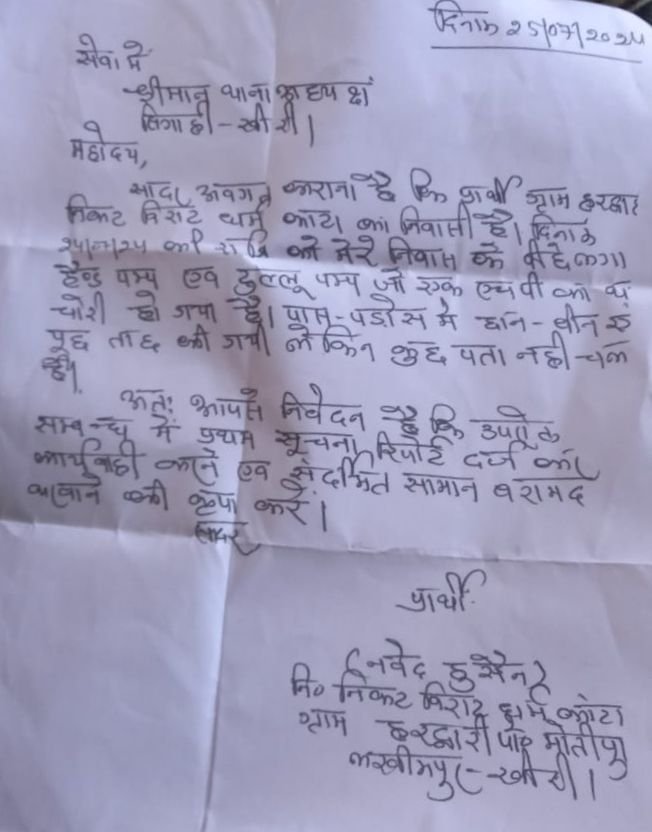 दिनांक 25/07/2024
सेवा में
श्रीमान थाना अध्यक्ष
सिंगाही - खीरी।
महोदय,
सादर अवगत कराना है कि प्रार्थी ग्राम हरद्वारी
निकट विराट धर्म कांटा का निवासी है। दिनांक
24/07/24 की रात्रि को मेरे निवास के पीछे लगा
हैन्ड पम्प एवं टुल्लू पम्प जो एक एच पी का था
चोरी हो गया है। पास-पड़ोस में छान-बीन एवं
पूछ ताछ की गयी लेकिन कुछ पता नहीं चल
है।
अतः आपसे निवेदन है कि उपरोक्त
सम्बन्ध में प्रथम सूचना रिपोर्ट दर्ज कर
कार्यवाही करने एवं संदर्भित सामान बरामद
करवाने की कृपा करें।
सादर
प्रार्थी
(नवेद हुसैन)
नि० निकट विराट धर्म कांटा
ग्राम हरद्वारी पो० मोतीपुर
लखीमपुर - खीरी।